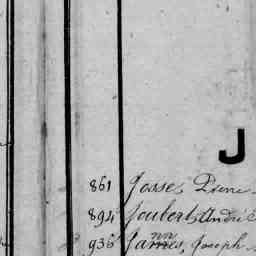 J
861 Josses Pierre
894 Joubert André
936 James, Joseph